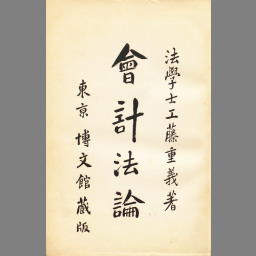 法學士工藤重義著
會計法論
東京 博文館蔵版